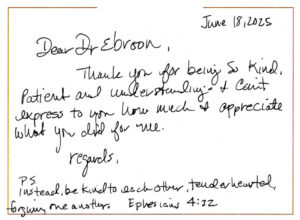 June 18, 2025
Dear Dr Ebroon,
Thank you for being so kind,
Patient and understanding. I Can't
express to you how much I appreciate
what you did for me.
regards,
P.S.
Instead, be kind to each other, tenderhearted,
forgiving one another. Ephesians 4:32